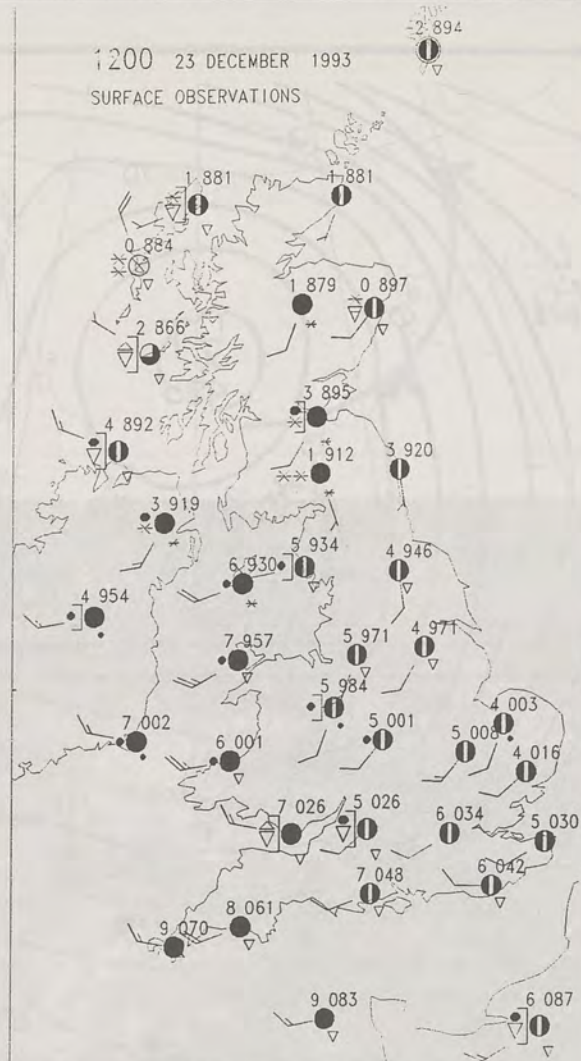 -2 894
1200 23 DECEMBER 1993
SURFACE OBSERVATIONS
1 881
1 881
0 884
1 879
0 897
2 866
3 895
4 892
1 912
3 920
3 919
5 934
6 930
4 946
4 954
7 957
5 971
4 971
5 984
4 003
7 002
6 001
5 001
5 008
4 016
7 026
5 026
6 034
5 030
7 048
6 042
9 070
8 061
9 083
6 087